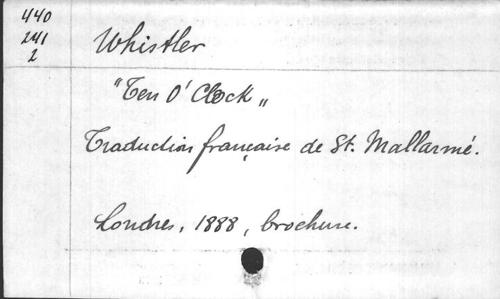 440
241
2
Whistler
"Ten O' Clock"
Traduction française de St. Mallarmé.
Londres, 1888, brochure.